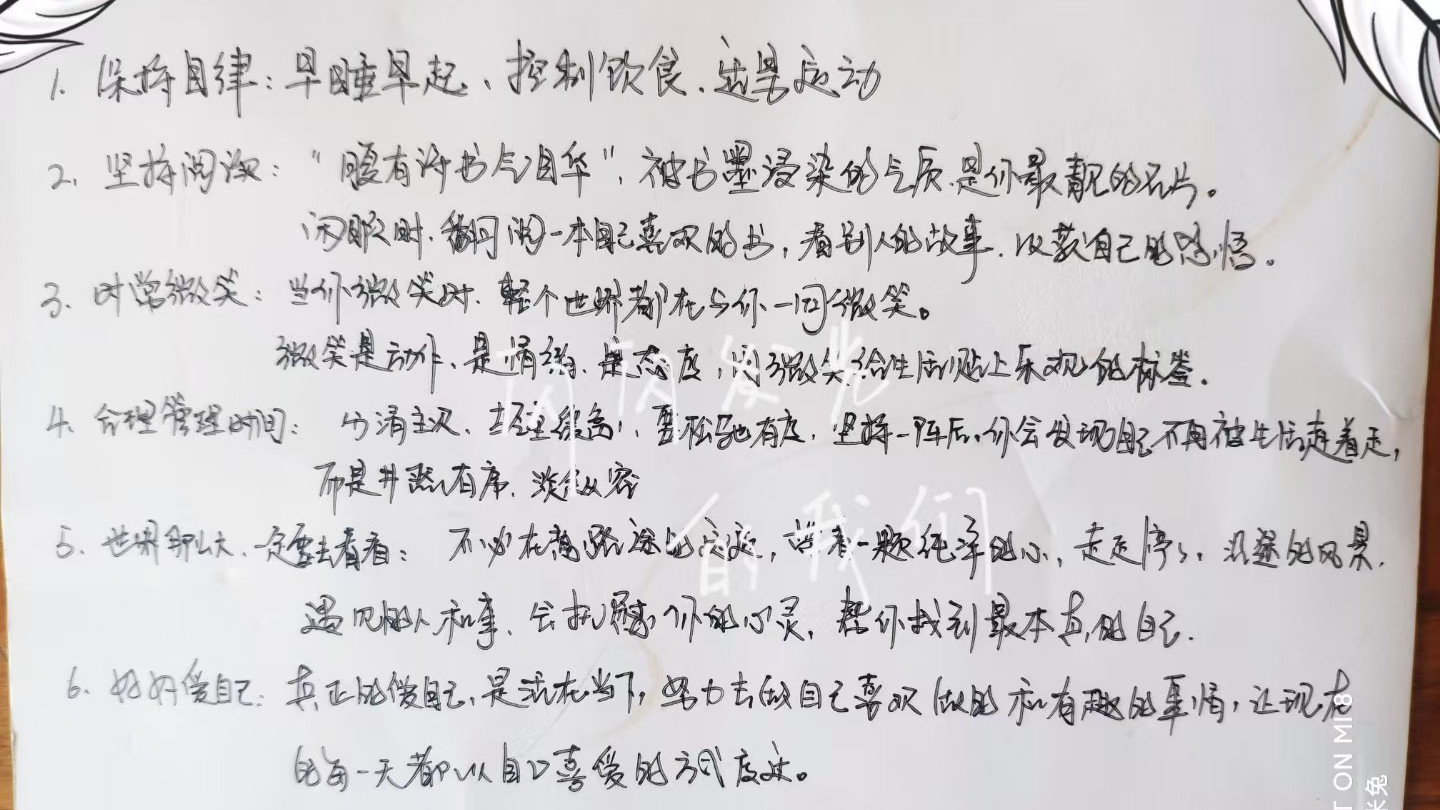 1. 保持自律：早睡早起、控制饮食、适量运动
2. 坚持阅读：“腹有诗书气自华”，被书墨浸染的气质，是你最靓的名片。
闲暇时，翻阅一本自己喜欢的书，看别人的故事，收获自己的感悟。
3. 时常微笑：当你微笑时，整个世界都在与你一同微笑。
微笑是动作、是情绪、是态度，用微笑给生活贴上乐观的标签。
4. 合理管理时间：分清主次、轻重缓急，要松弛有度，坚持一阵后，你会发现自己不再被生活赶着走，
而是井然有序、淡然从容
5. 世界那么大，一定要去看看：不必在意路途的交通，带着一颗纯净的心，走走停停，沿途的风景，
遇见的人和事，会抚慰你的心灵，帮你找到最本真的自己.
6. 好好爱自己：真正的爱自己，是活在当下，努力去做自己喜欢做的和有趣的事情，让现在
的每一天都以自己喜爱的方式度过。
闪闪发光
的我们
T ON MI 8
米兔